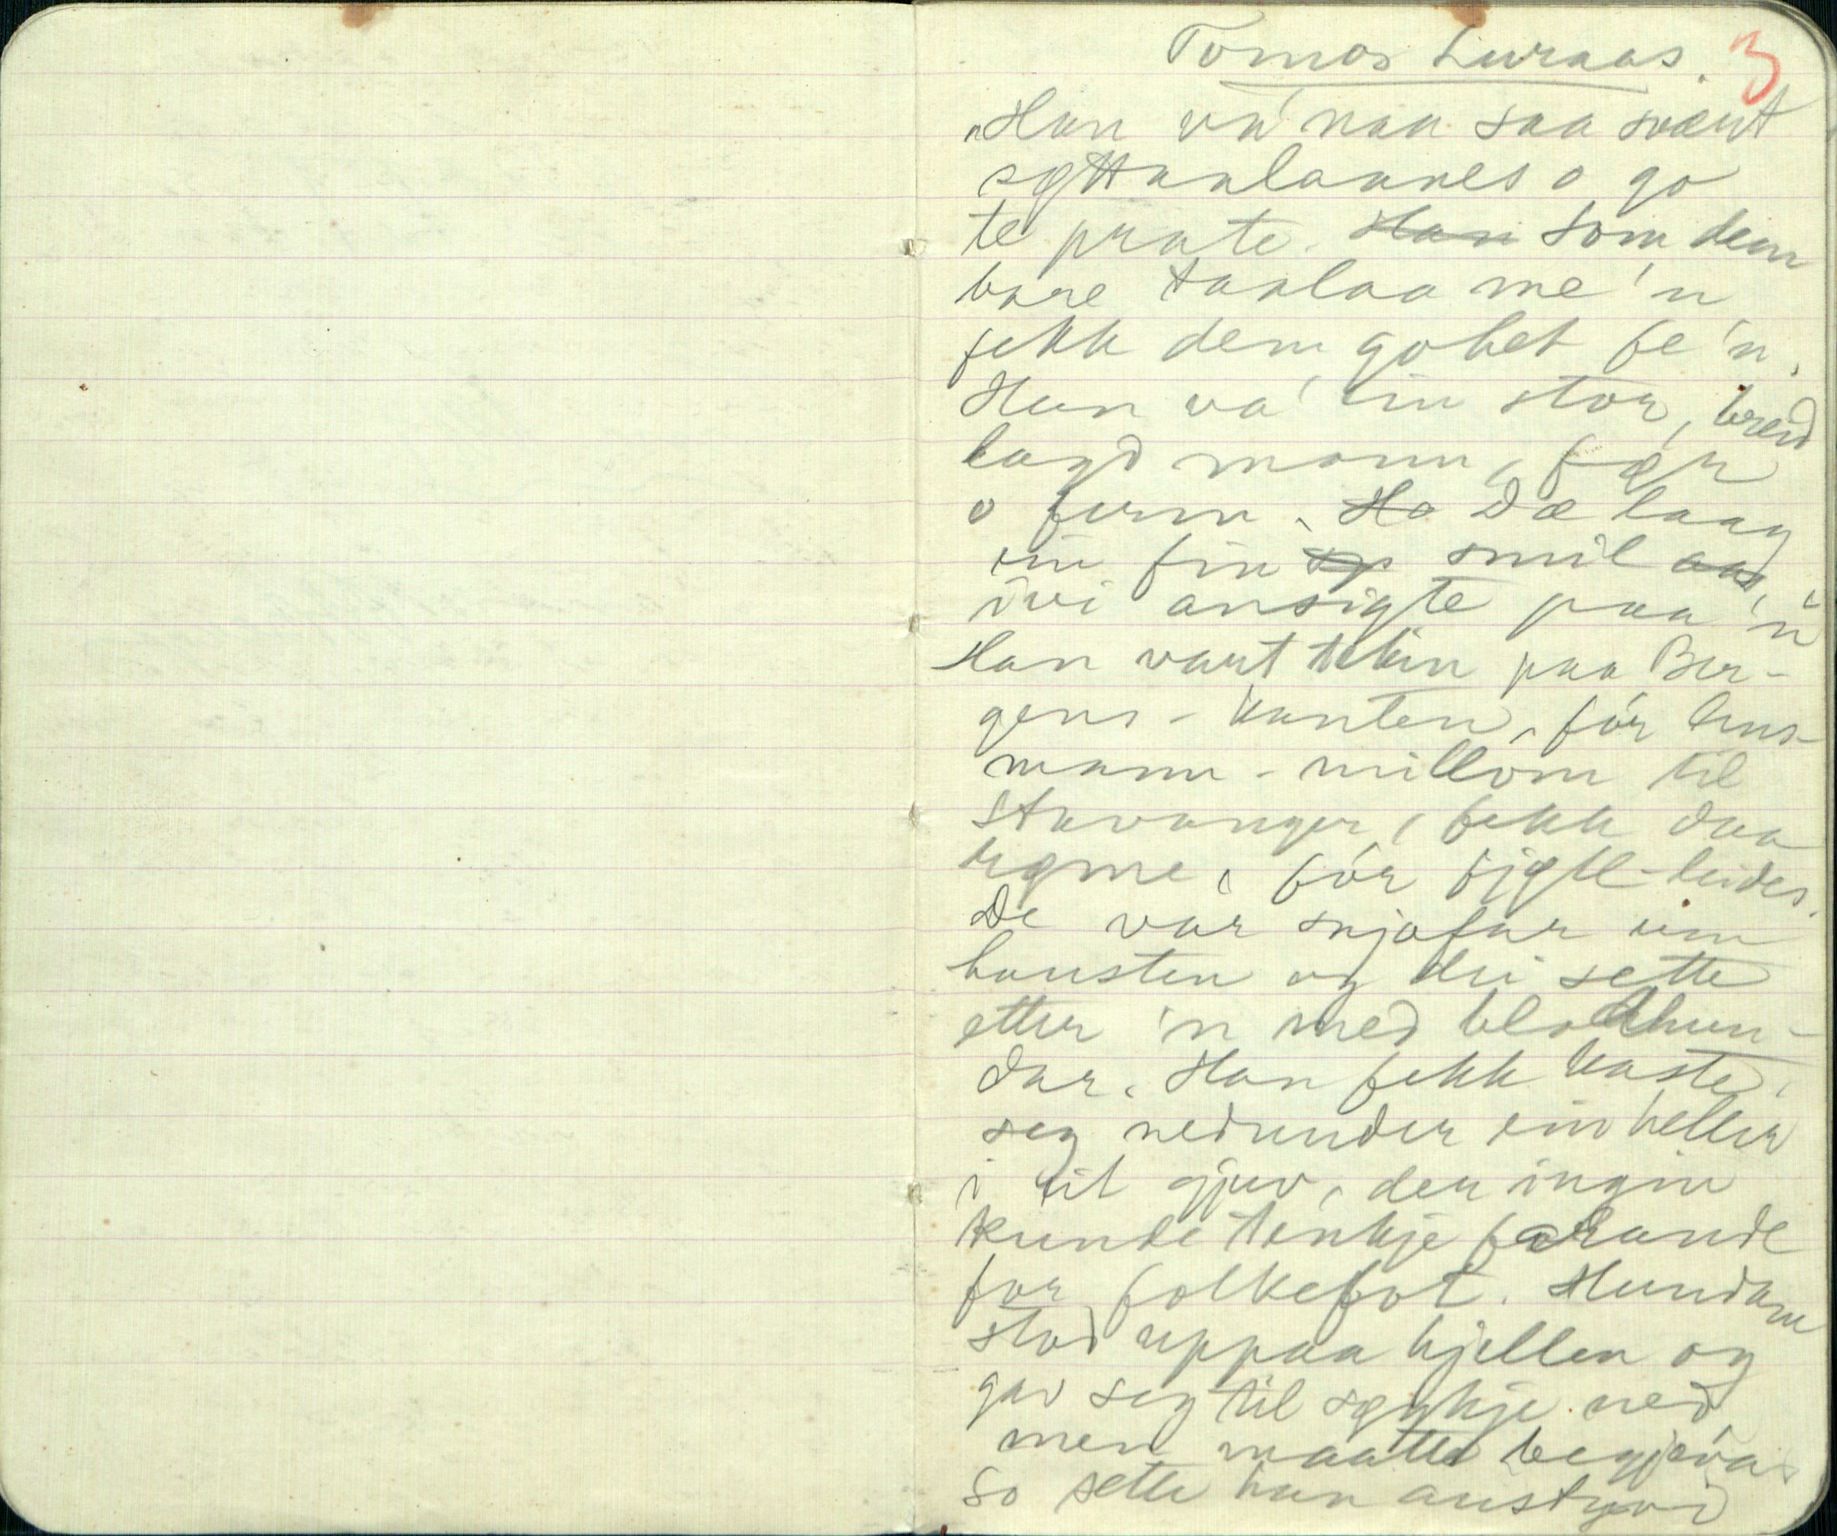 Tomos Luraas. 3
"Han va' naa saa svært
sættaalaanes o go
te prate. Han Som dem
bare taalaa me 'n
fekk dem gohet fe 'n.
Han va' ein stor, breid
lagd mann, før
o ferm. Ha Dæ laag
ein fin sp smil aas
ivi ansigte paa 'n
Han vart tekin paa Ber-
gens-kanten, fór lens-
mann-millom til
Stavanger, fekk daa
røme, fór fjøll-leides.
De var snjofar um
hausten og dei sette
etter 'n med blodhun-
dar. Han fekk kaste
seg nedunder ein heller
i eit gjuv, der ingin
kunde tenkje farande
for folkefot. Hundan
stod uppaa hjellen og
gav seg til søykje ned
men maatte begjeva
So sette han austyvi